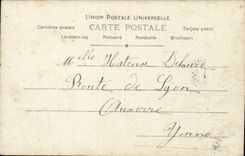 UNION POSTALE UNIVERSELLE
CARTE POSTALE
Cartolina postale Tarjeta postal
Levelezo-lap Postcard Postkarte Briefkaart
Melle Hortense
Route de Lyon
Auxerre
Yonne